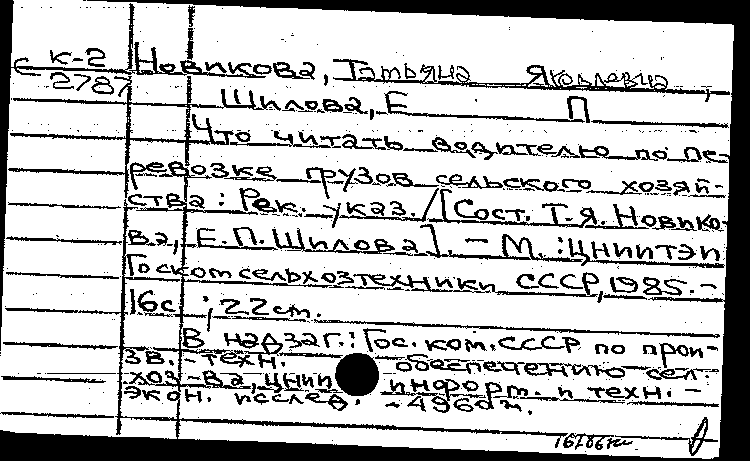 С К-2 Новикова, Татьяна Яковлевна,
2787
Шилова, Е П
Что читать водителю по пе-
ревозке грузов сельского хозяй-
ства: Рек. указ. / [Сост. Т.Я. Новико-
ва, Е.П. Шилова]. - М.: ЦНИИТЭИ
Госкомсельхозтехники СССР, 1985. -
16с.; 22см.
В надзаг.: Гос. ком. СССР по прои-
зв.-техн. обеспечению сел.
хоз-ва, ЦНИИ информ. и техн.-
экон. исслед. - 4960т.